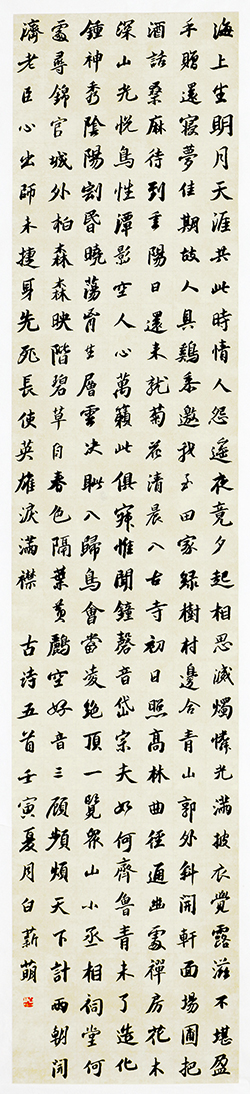 海上生明月天涯共此時情人怨遙夜竟夕起相思滅燭憐光滿披衣覺露滋不堪盈
手贈還寢夢佳期故人具鷄黍邀我至田家綠樹村邊合青山郭外斜開軒面場圃把
酒話桑麻待到重陽日還來就菊花清晨入古寺初日照高林曲徑通幽處禪房花木
深山光悅鳥性潭影空人心萬籟此俱寂惟聞鐘磬音岱宗夫如何齊魯青未了造化
鍾神秀陰陽割昏曉蕩胷生層雲決眦入歸鳥會當凌絶頂一覽衆山小丞相祠堂何
處尋錦官城外柏森森映階碧草自春色隔葉黄鸝空好音三顧頻煩天下計兩朝開
濟老臣心出師未捷身先死長使英雄淚滿襟 古詩五首壬寅夏月白薪萌